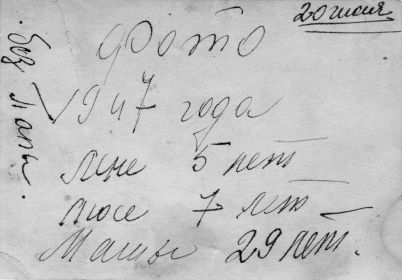 20
Фото
1947 года
лене 5 лет
люсе 7 лет
29 лет.
без Папы.